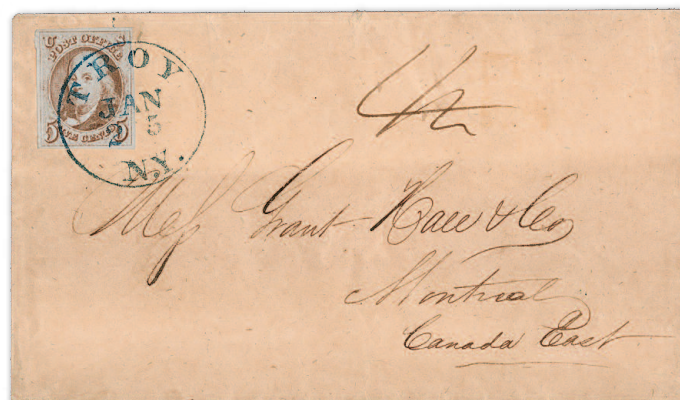 POST OFFICE
5 FIVE CENTS 5
TROY
JAN
25
N.Y.
Mess Grant Hall & Co
Montreal
Canada East